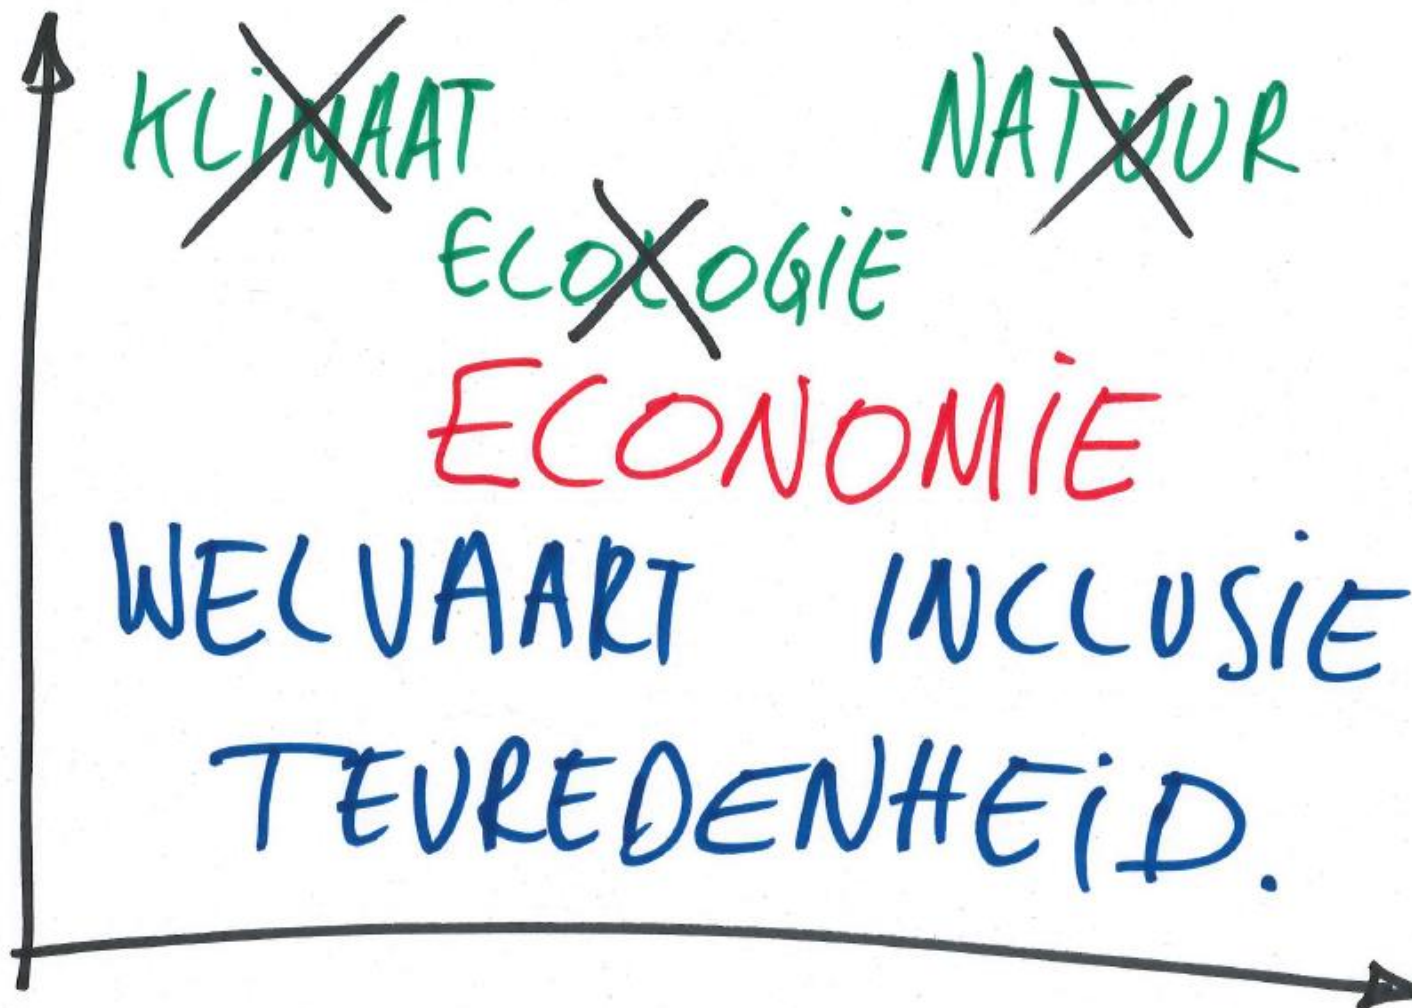 KLiMAAT NATUUR
ECOLOGiE
ECONOMiE
WELVAART INCLUSiE
TEVREDENHEiD.